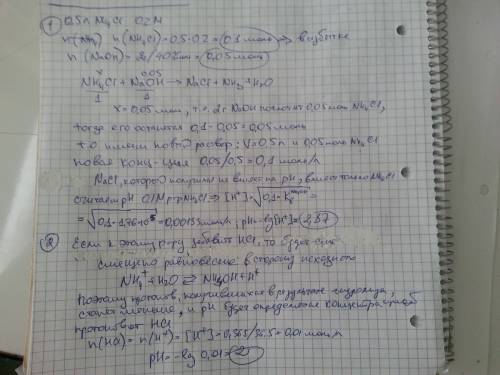 ① 0,5л NH4Cl 0.2M
n(NH4Cl) = 0.5·0.2 = 0,1 моль ⇒ в избытке
n(NaOH) = 2/40 = 0,05 моль
x 0,05
NH4Cl + NaOH → NaCl + NH3 + H2O
1 1
x = 0,05 моль, т.е. 2г NaOH поглотит 0,05 моль NH4Cl,
тогда его останется 0,1-0,05 = 0,05 моль
т.о имеем новый раствор: V=0,5л и 0,05 моль NH4Cl
новая конц-ция 0,05/0,5 = 0,1 моль/л
NaCl, который получился не влияет на pH,
считаем pH 0,1M р-ра NH4Cl ⇒ [H+] =
= 0,00133 моль/л; pH = -lg[H+] = 2,87
② Если к этому р-ру добавить HCl, то будет
смещено равновесие в сторону исходного
NH4+ + H2O ⇄ NH4OH + H+
Поэтому протонов, получившихся в результате гидролиза,
станет меньше, и pH будет определяться концентрацией
протонов от HCl
n(HCl) = n(H+) = [H+] = 0,365/36.5 = 0,01 моль/л
pH = -lg 0,01 = 2